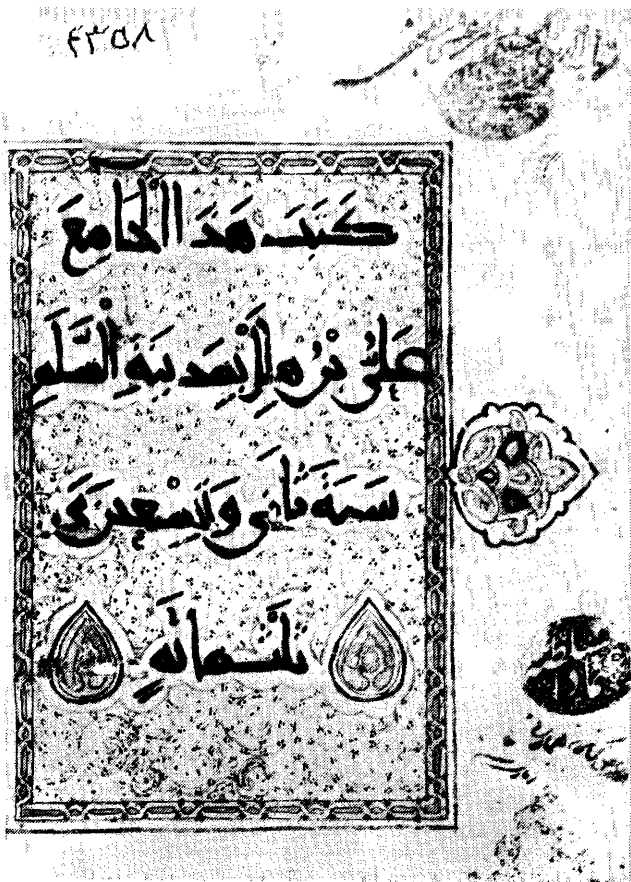 ۴۳۵۸
كَتَبَ هَذَا الْجَامِعَ
عَلِيُّ بْنُ هِلَالٍ بِمَدِينَةِ السَّلَمِ
سَنَةَ ثَانِي وَتِسْعِينَ وَ
ثَلَثَمِائَةٍ